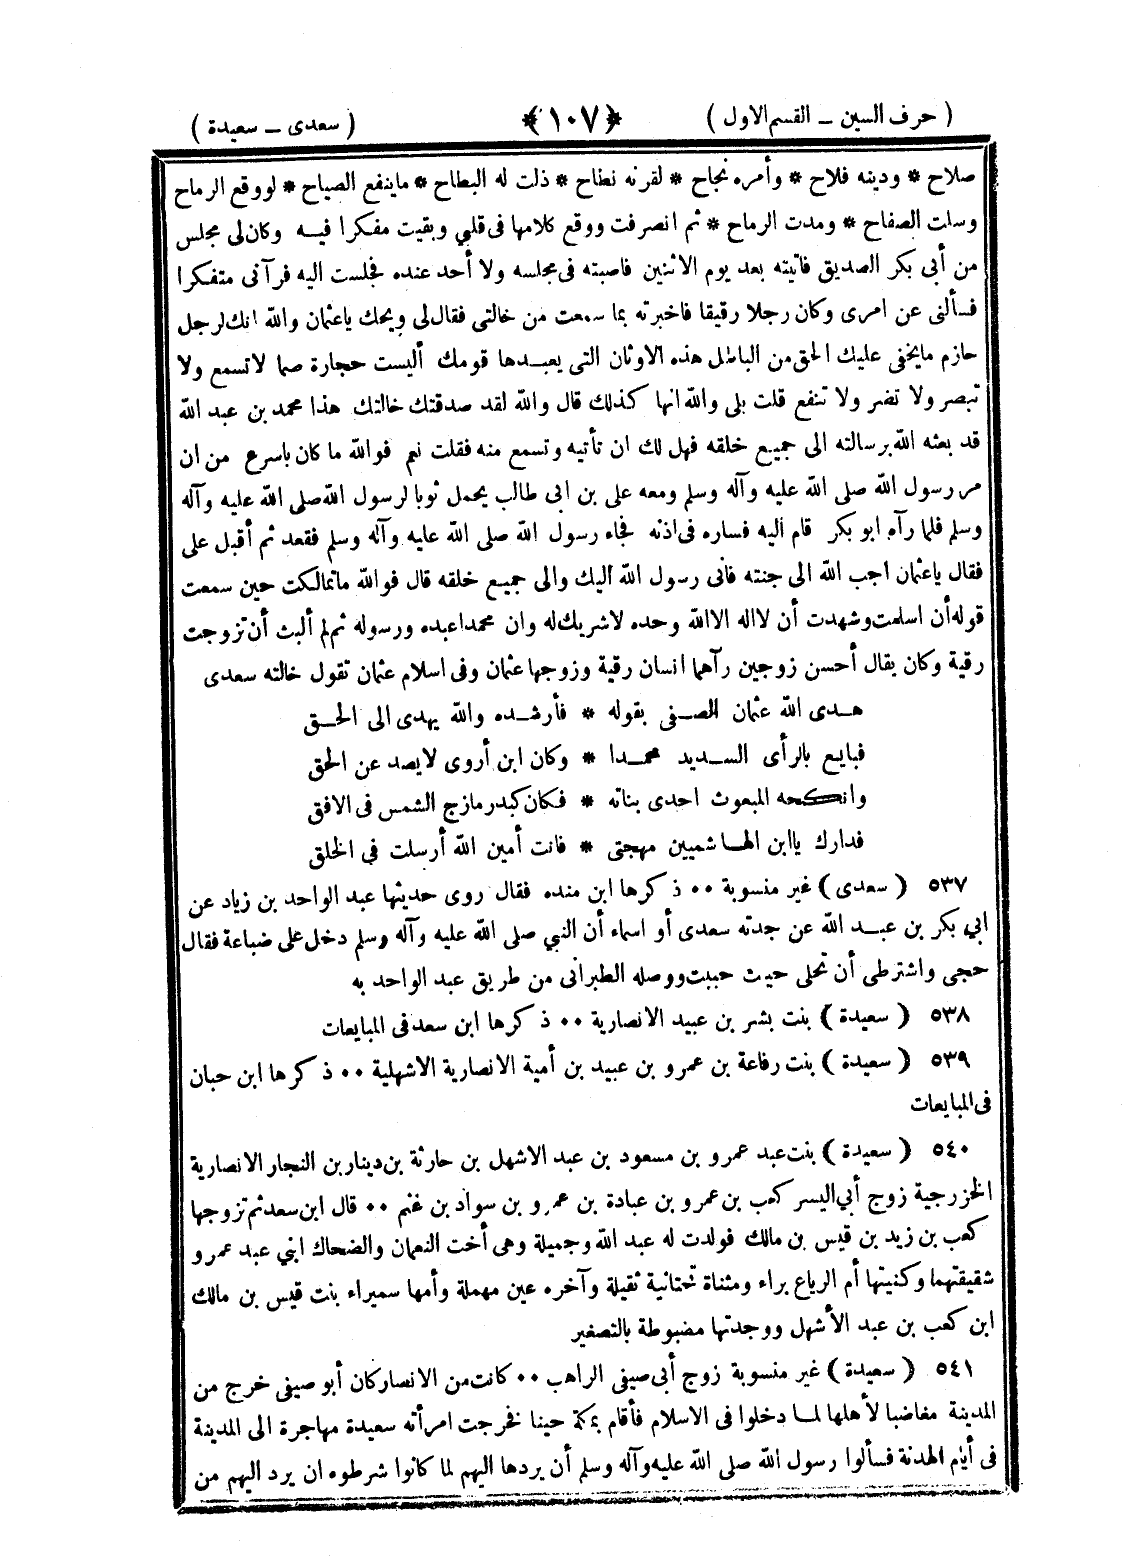 ( حرف السين – القسم الاول ) ﴿١٠٧﴾ ( سعدى – سعيدة )
صلاح * ودينه فلاح * وأمره نجاح * لقرنه نطاح * ذلت له البطاح * ماينفع الصياح * لو وقع الرماح
وسلت الصفاح * ومدت الرماح * ثم انصرفت ووقع كلامها فى قلبي وبقيت مفكرا فيه وكان لى مجلس
من أبي بكر الصديق فاتيته بعد يوم الاثنين فاصبته فى مجلسه ولا أحد عنده فجلست اليه فرآنى متفكرا
فسألنى عن امرى وكان رجلا رقيقا فاخبرته بما سمعت من خالتى فقال لى ويحك ياعثمان والله انك لرجل
حازم مايخفى عليك الحق من الباطل هذه الاوثان التى يعبدها قومك أليست حجارة صما لاتسمع ولا
تبصر ولا تضر ولا تنفع قلت بلى والله انها كذلك قال والله لقد صدقتك خالتك هذا محمد بن عبد الله
قد بعثه الله برسالته الى جميع خلقه فهل لك ان تأتيه وتسمع منه فقلت نعم فوالله ما كان باسرع من ان
مر رسول الله صلى الله عليه وآله وسلم ومعه على بن ابى طالب يحمل ثوبا لرسول الله صلى الله عليه وآله
وسلم فلما رآه ابو بكر قام اليه فساره فى اذنه فجاء رسول الله صلى الله عليه وآله وسلم فقعد ثم أقبل على
فقال ياعثمان اجب الله الى جنته فانى رسول الله اليك والى جميع خلقه قال فوالله ماتمالكت حين سمعت
قوله أن اسلمت وشهدت أن لااله الاالله وحده لاشريك له وان محمدا عبده ورسوله ثم لم ألبث أن تزوجت
رقية وكان يقال أحسن زوجين رآهما انسان رقية وزوجها عثمان وفى اسلام عثمان تقول خالته سعدى
هدى الله عثمان الصفى بقوله * فأرشده والله يهدى الى الحق
فبايع بالرأى السديد محمدا * وكان ابن أروى لايصد عن الحق
وانكحه المبعوث احدى بناته * فكان كبدر مازج الشمس فى الافق
فدارك ياابن الهاشميين مهجتى * فانت أمين الله أرسلت في الخلق
٥٣٧ ( سعدى ) غير منسوبة ٠٠ ذكرها ابن منده فقال روى حديثها عبد الواحد بن زياد عن
ابي بكر بن عبد الله عن جدته سعدى أو اسماء أن النبي صلى الله عليه وآله وسلم دخل على ضباعة فقال
حجى واشترطى أن تحلى حيث حببت ووصله الطبرانى من طريق عبد الواحد به
٥٣٨ ( سعيدة ) بنت بشر بن عبيد الانصارية ٠٠ ذكرها ابن سعد فى المبايعات
٥٣٩ ( سعيدة ) بنت رفاعة بن عمرو بن عبيد بن أمية الانصارية الاشهلية ٠٠ ذكرها ابن حبان
فى المبايعات
٥٤٠ ( سعيدة ) بنت عبد عمرو بن مسعود بن عبد الاشهل بن حارثة بن دينار بن النجار الانصارية
الخزرجية زوج أبي اليسر كعب بن عمرو بن عبادة بن عمرو بن سواد بن غنم ٠٠ قال ابن سعد ثم تزوجها
كعب بن زيد بن قيس بن مالك فولدت له عبد الله وجميلة وهى أخت النعمان والضحاك ابني عبد عمرو
شقيقتهما وكنيتها أم الرياع براء ومثناة تحتانية ثقيلة وآخره عين مهملة وأمها سميراء بنت قيس بن مالك
ابن كعب بن عبد الأشهل ووجدتها مضبوطة بالتصغير
٥٤١ ( سعيدة ) غير منسوبة زوج أبى صيفى الراهب ٠٠ كانت من الانصار كان أبو صيفى خرج من
المدينة مغاضبا لأهلها لما دخلوا فى الاسلام فأقام بمكة حينا فخرجت امرأته سعيدة مهاجرة الى المدينة
فى أيام الهدنة فسألوا رسول الله صلى الله عليه وآله وسلم أن يردها اليهم لما كانوا شرطوه ان يرد اليهم من